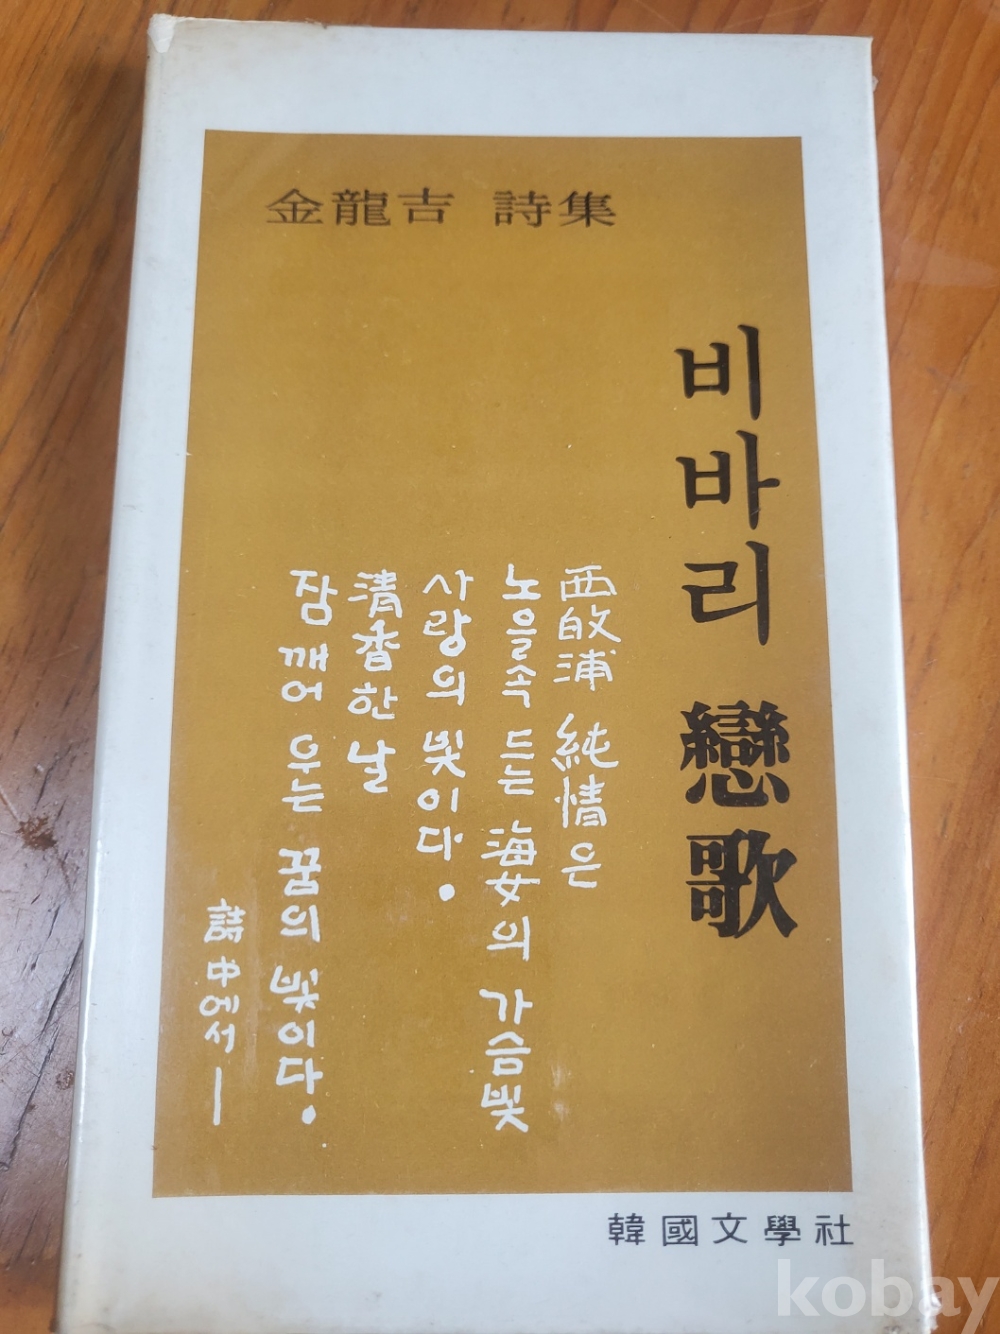 金龍吉 詩集
비바리 戀歌
西歸浦 純情은
노을속 드는 海女의 가슴빛
사랑의 빛이다.
清香한 날
잠 깨어 우는 꿈의 빛이다.
詩中에서 —
韓國文學社
kobay